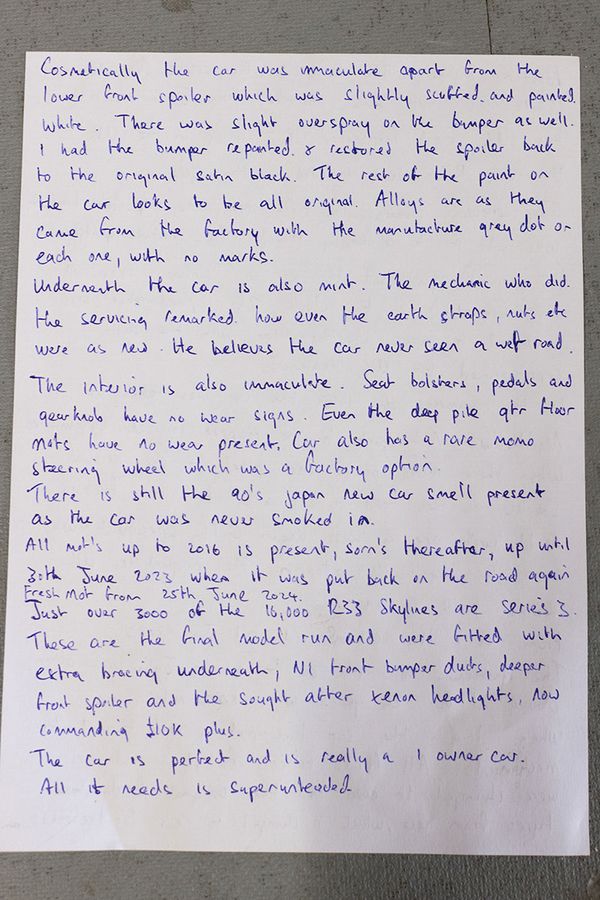 Cosmetically the car was immaculate apart from the
lower front spoiler which was slightly scuffed. and painted.
White. There was slight overspray on the bumper as well.
I had the bumper repainted. & restored the spoiler back
to the original satin black. The rest of the paint on
the car looks to be all original. Alloys are as they
came from the factory with the manufacture grey dot on
each one, with no marks.
Underneath the car is also mint. The mechanic who did.
the servicing remarked. how even the earth straps, nuts etc
were as new. He believes the car never seen a wet road.
The interior is also immaculate. Seat bolsters, pedals and
gearknob have no wear signs. Even the deep pile gtr floor
mats have no wear present. Car also has a rare momo
steering wheel which was a factory option.
There is still the 90's japan new car smell present
as the car was never smoked in.
All mot's up to 2016 is present, sorn's thereafter, up until
30th June 2023 when it was put back on the road again
Fresh Mot from 25th June 2024.
Just over 3000 of the 16,000 R33 Skylines are series 3.
These are the final model run and were fitted with
extra bracing underneath, N1 front bumper ducts, deeper
front spoiler and the sought after xenon headlights, now
commanding $10K plus.
The car is perfect and is really a 1 owner car.
All it needs is superunleaded